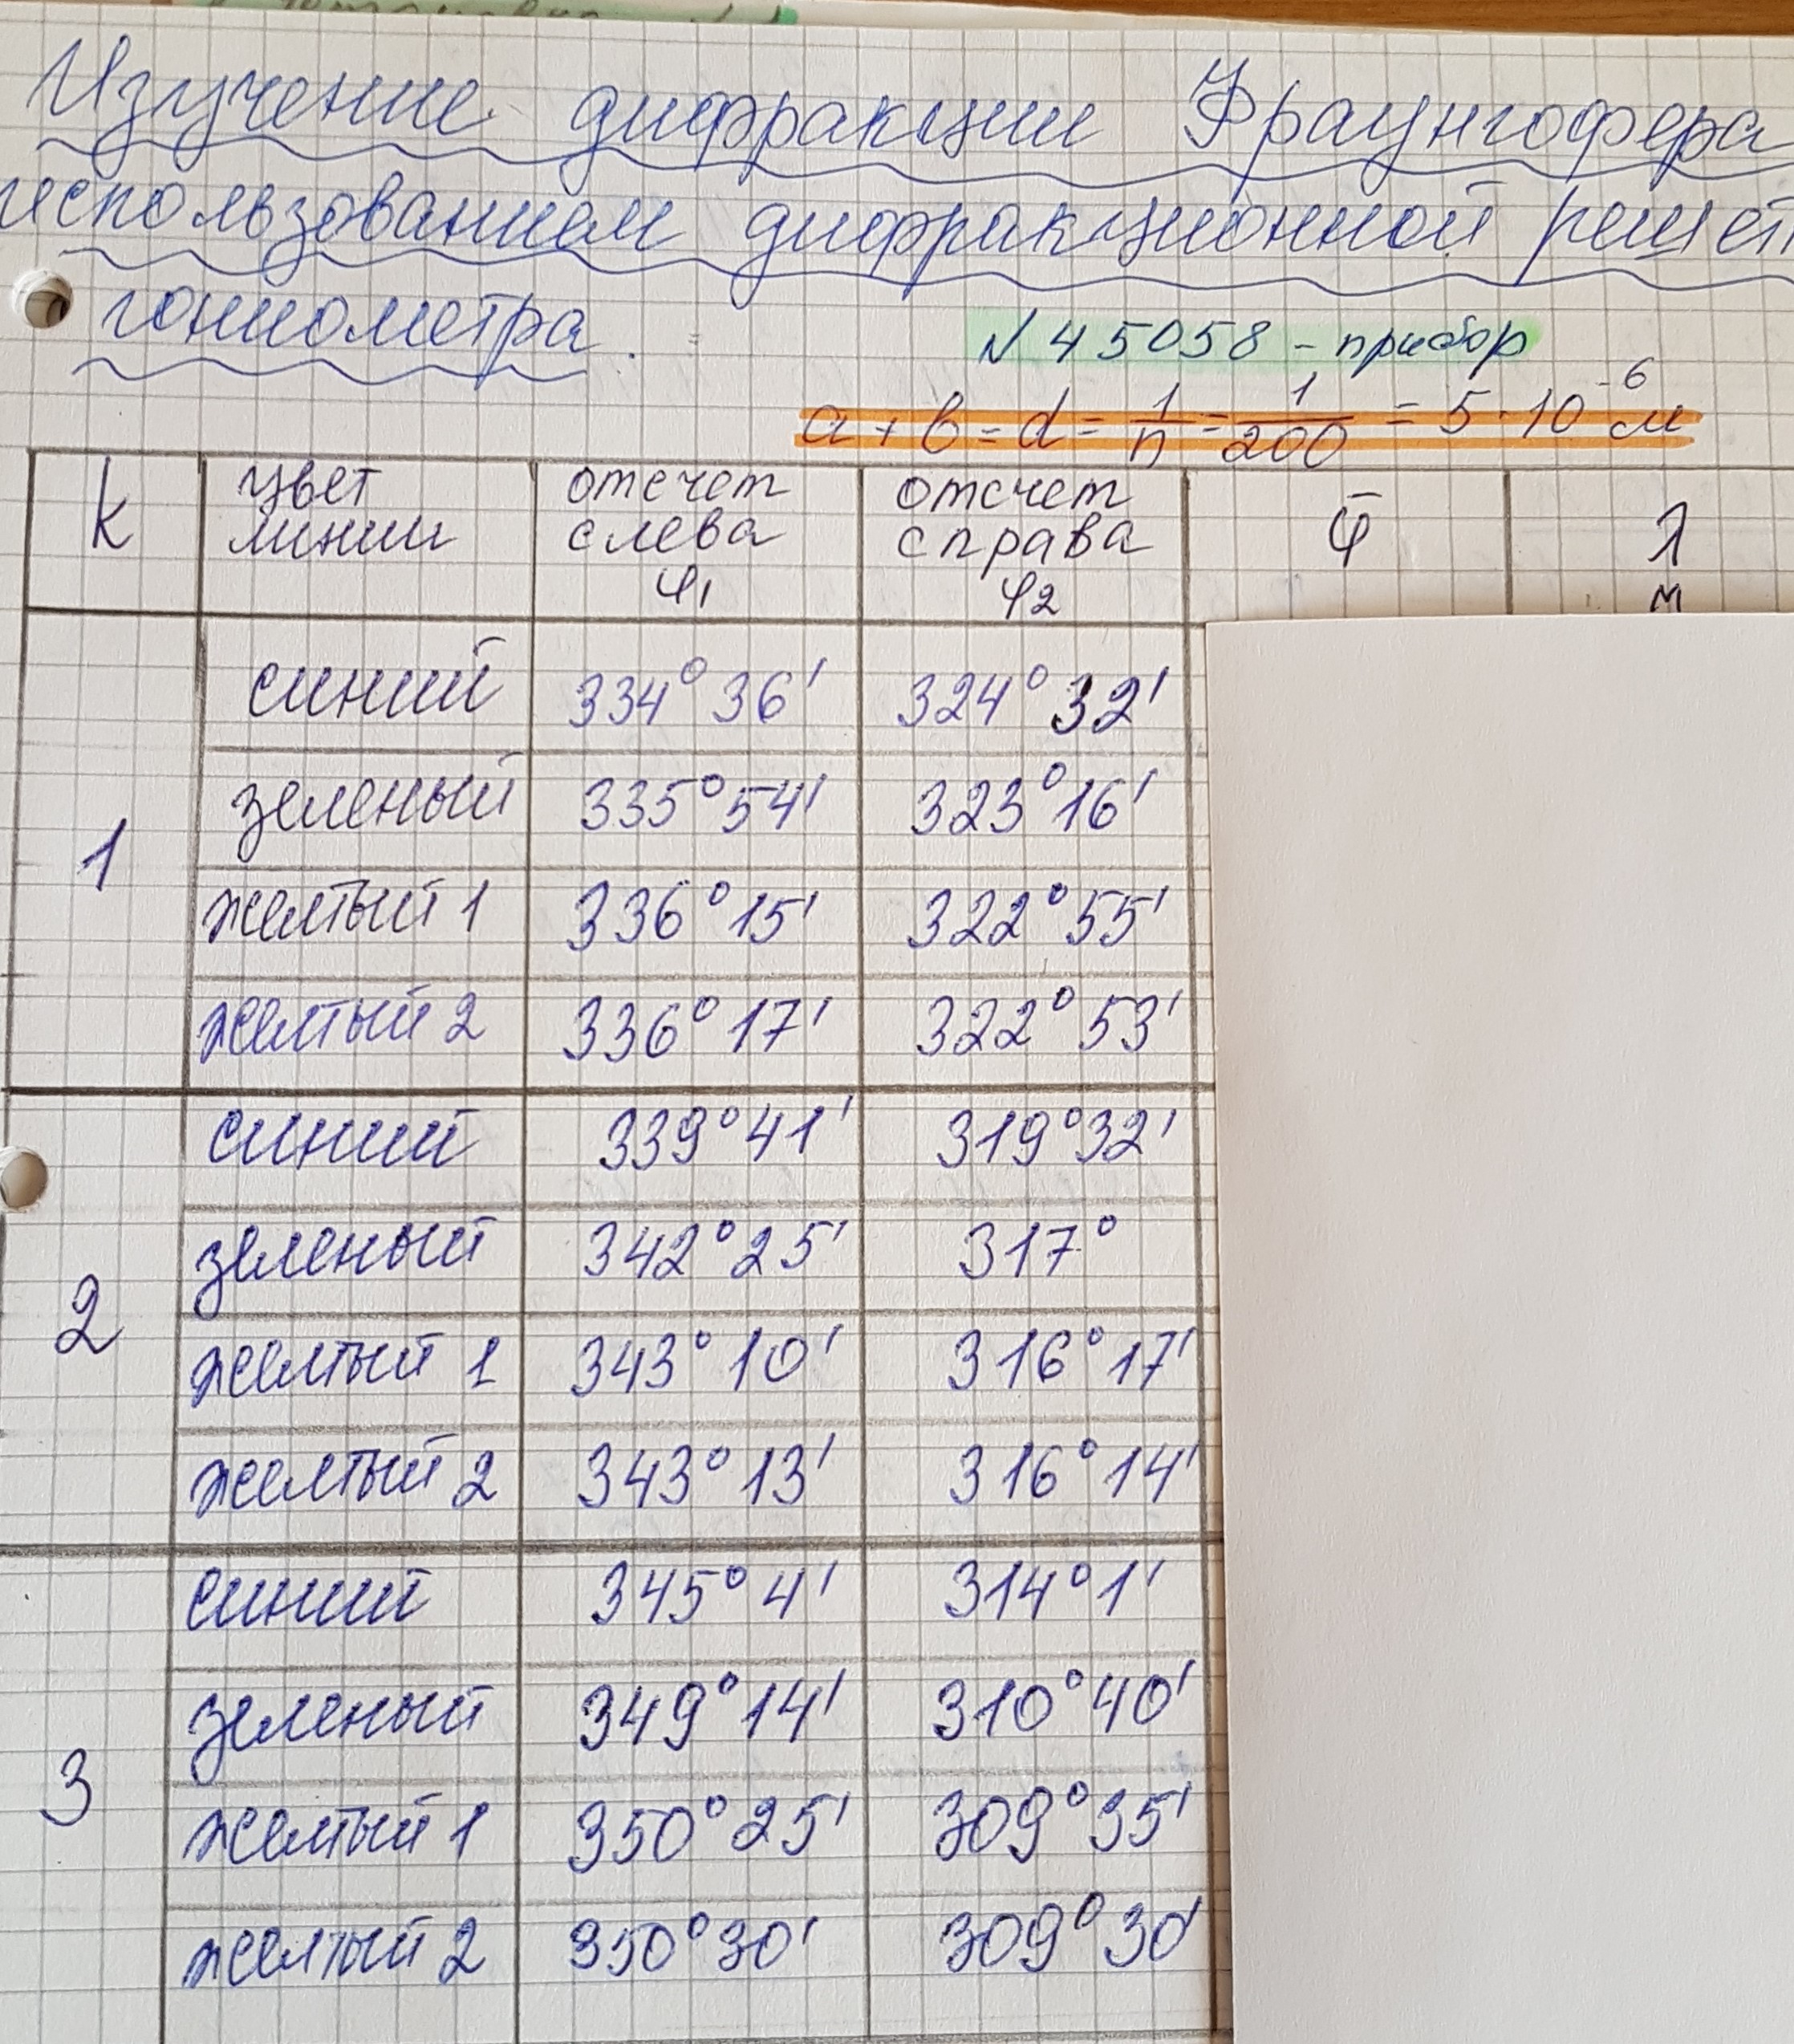 Изучение дифракции Фраунгофера
использованием дифракционной решет
гониометра.
N 45058 - прибор
a + b = d = 1/n = 1/200 = 5 · 10^-6 м
k цвет линии отсчет слева φ1 отсчет справа φ2 φ̄ λ м
1
синий 334° 36' 324° 32'
зеленый 335° 54' 323° 16'
желтый 1 336° 15' 322° 55'
желтый 2 336° 17' 322° 53'
2
синий 339° 41' 319° 32'
зеленый 342° 25' 317°
желтый 1 343° 10' 316° 17'
желтый 2 343° 13' 316° 14'
3
синий 345° 4' 314° 1'
зеленый 349° 14' 310° 40'
желтый 1 350° 25' 309° 35'
желтый 2 350° 30' 309° 30'